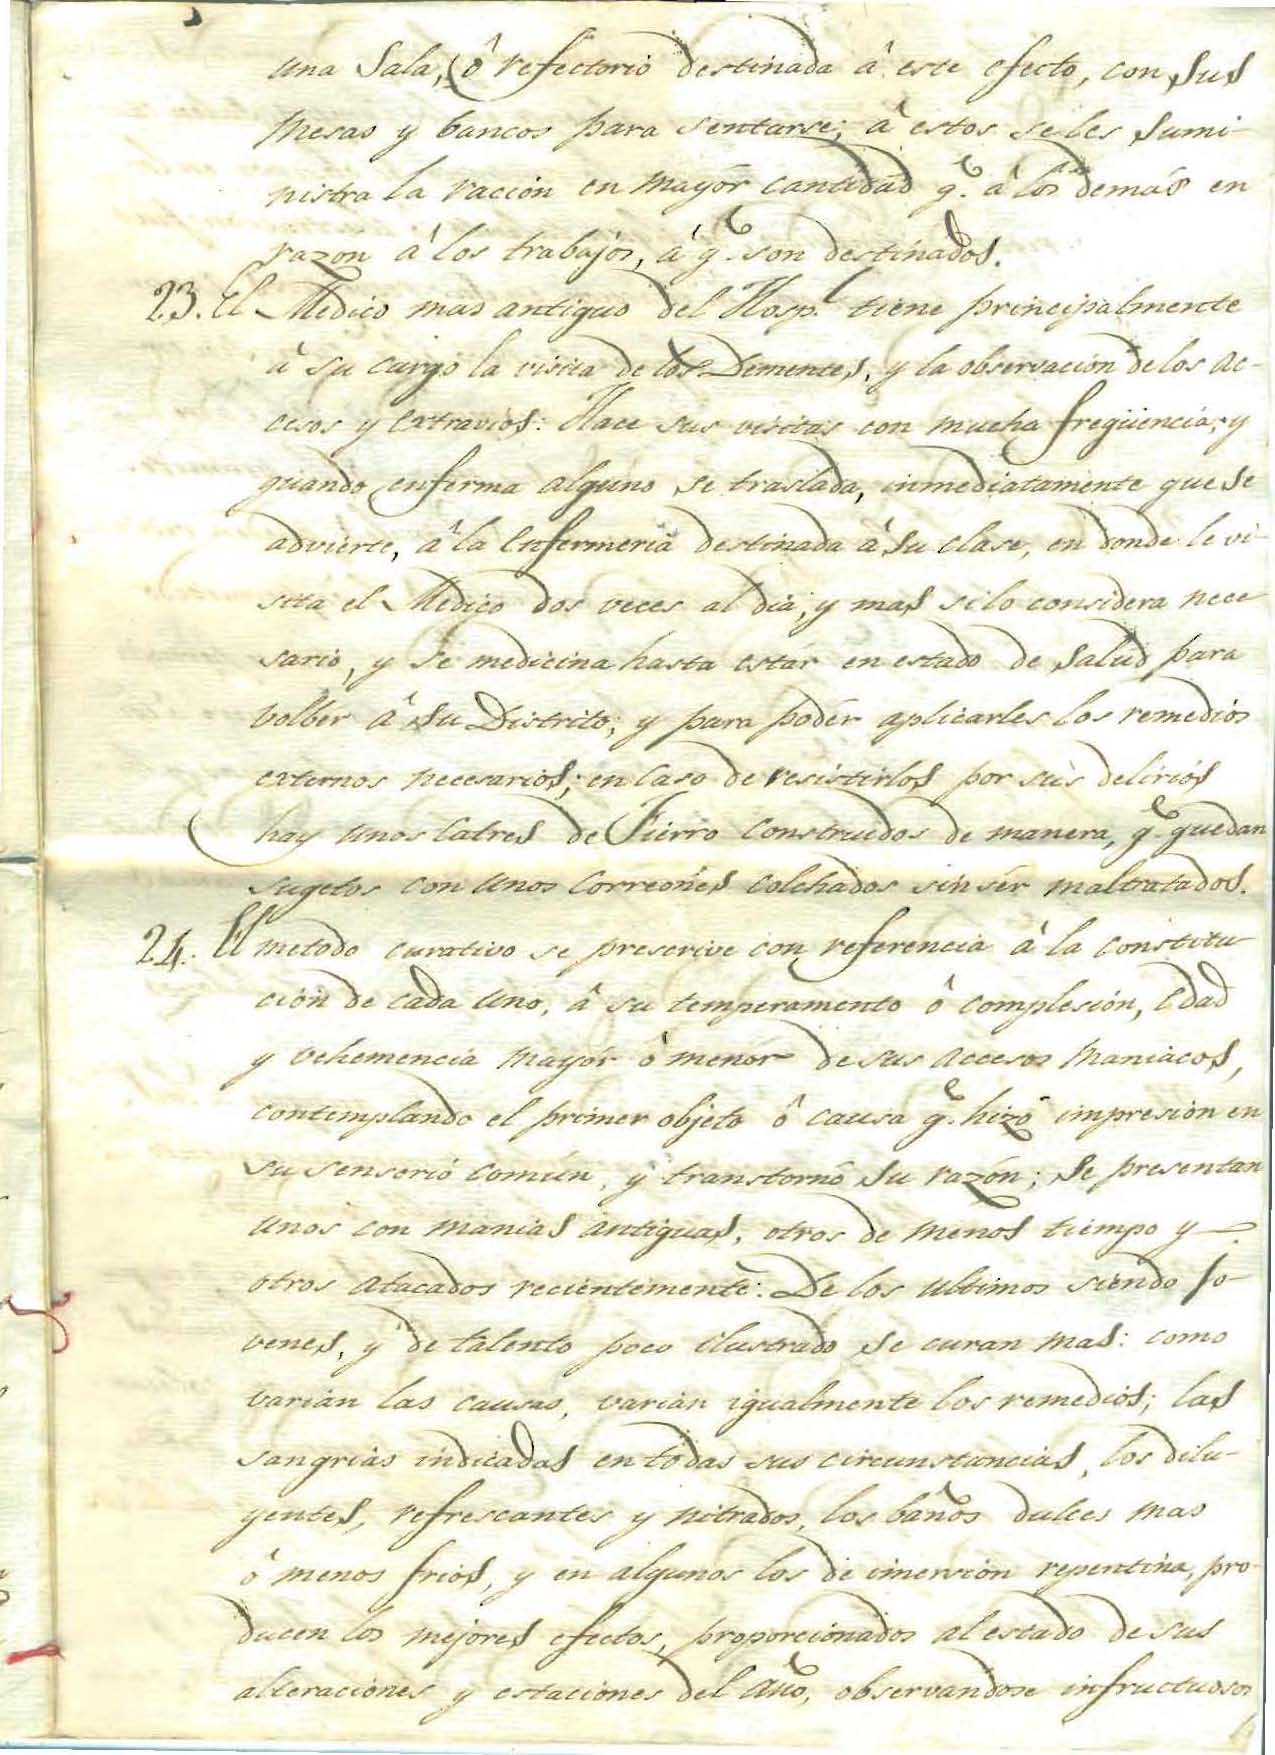 una Sala, ô refectorio destinada â este efecto, con sus
Mesas y bancos para sentarse; â estos se les sumi-
nistra la ración en mayór cantidad q.e â los demás en
razón á los trabajos, á q.e son destinados.
23. El Medico mas antiguo del Hosp.l tiene principalmente
á su cargo la visita de los Dementes, y la observación de los ac-
cesos y extravios: Hace sus visitas con mucha freqüencia; y
quando enferma alguno se traslada, inmediatamente que se
advierte, â la enfermeria destinada â su clase, en donde le vi-
sita el Medico dos veces al dia, y mas si lo considera nece
sario, y se medicina hasta estár en estado de salud para
volbér â su Distrito; y para podér aplicarles los remedios
externos necesarios; en caso de resistirlos por sus delirios
hay unos catres de Fierro construidos de manera, q.e quedan
sugetos con unos correones colchados sin sér maltratados.
24. El metodo curativo se prescrive con referencia à la constitu
ción de cada uno, â su temperamento ô complesión, edad
y vehemencia mayór ó menór de sus accesos maniacos,
contemplando el primer objeto ô causa q.e hizo impresión en
su sensorio común, y transtornó su razón; se presentan
unos con manias antiguas, otros de menos tiempo y
otros atacados recientemente: De los ultimos siendo jo-
venes, y de talento poco ilustrado se curan mas: como
varian las causas, varian igualmente los remedios; las
sangrias indicadas en todas sus circunstancias, los dilu-
yentes, refrescantes y nitrados, los baños dulces mas
ô menos frios, y en algunos los de imersión repentina, pro-
ducen los mejores efectos, proporcionados al estado de sus
alteraciones y estaciones del año, observandose infructuosos